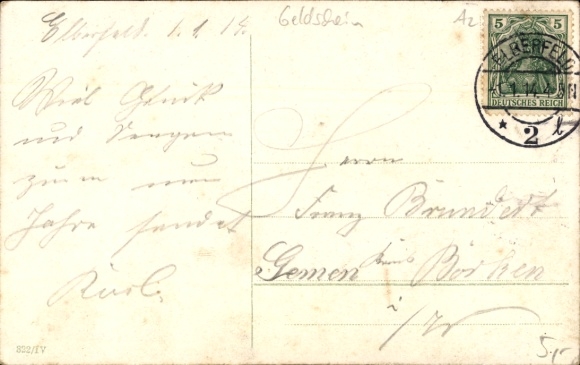 Elberfeld. 1.1.14.
Viel Glück
und Seegen
zum neuen
Jahre sendet
Karl.
Geldschein
A2
5 5
DEUTSCHES REICH
ELBERFELD
1.14.
* 2 l
Herrn
Franz Brundert
Gemen Kreis Borken
i/W
5,-
322/IV